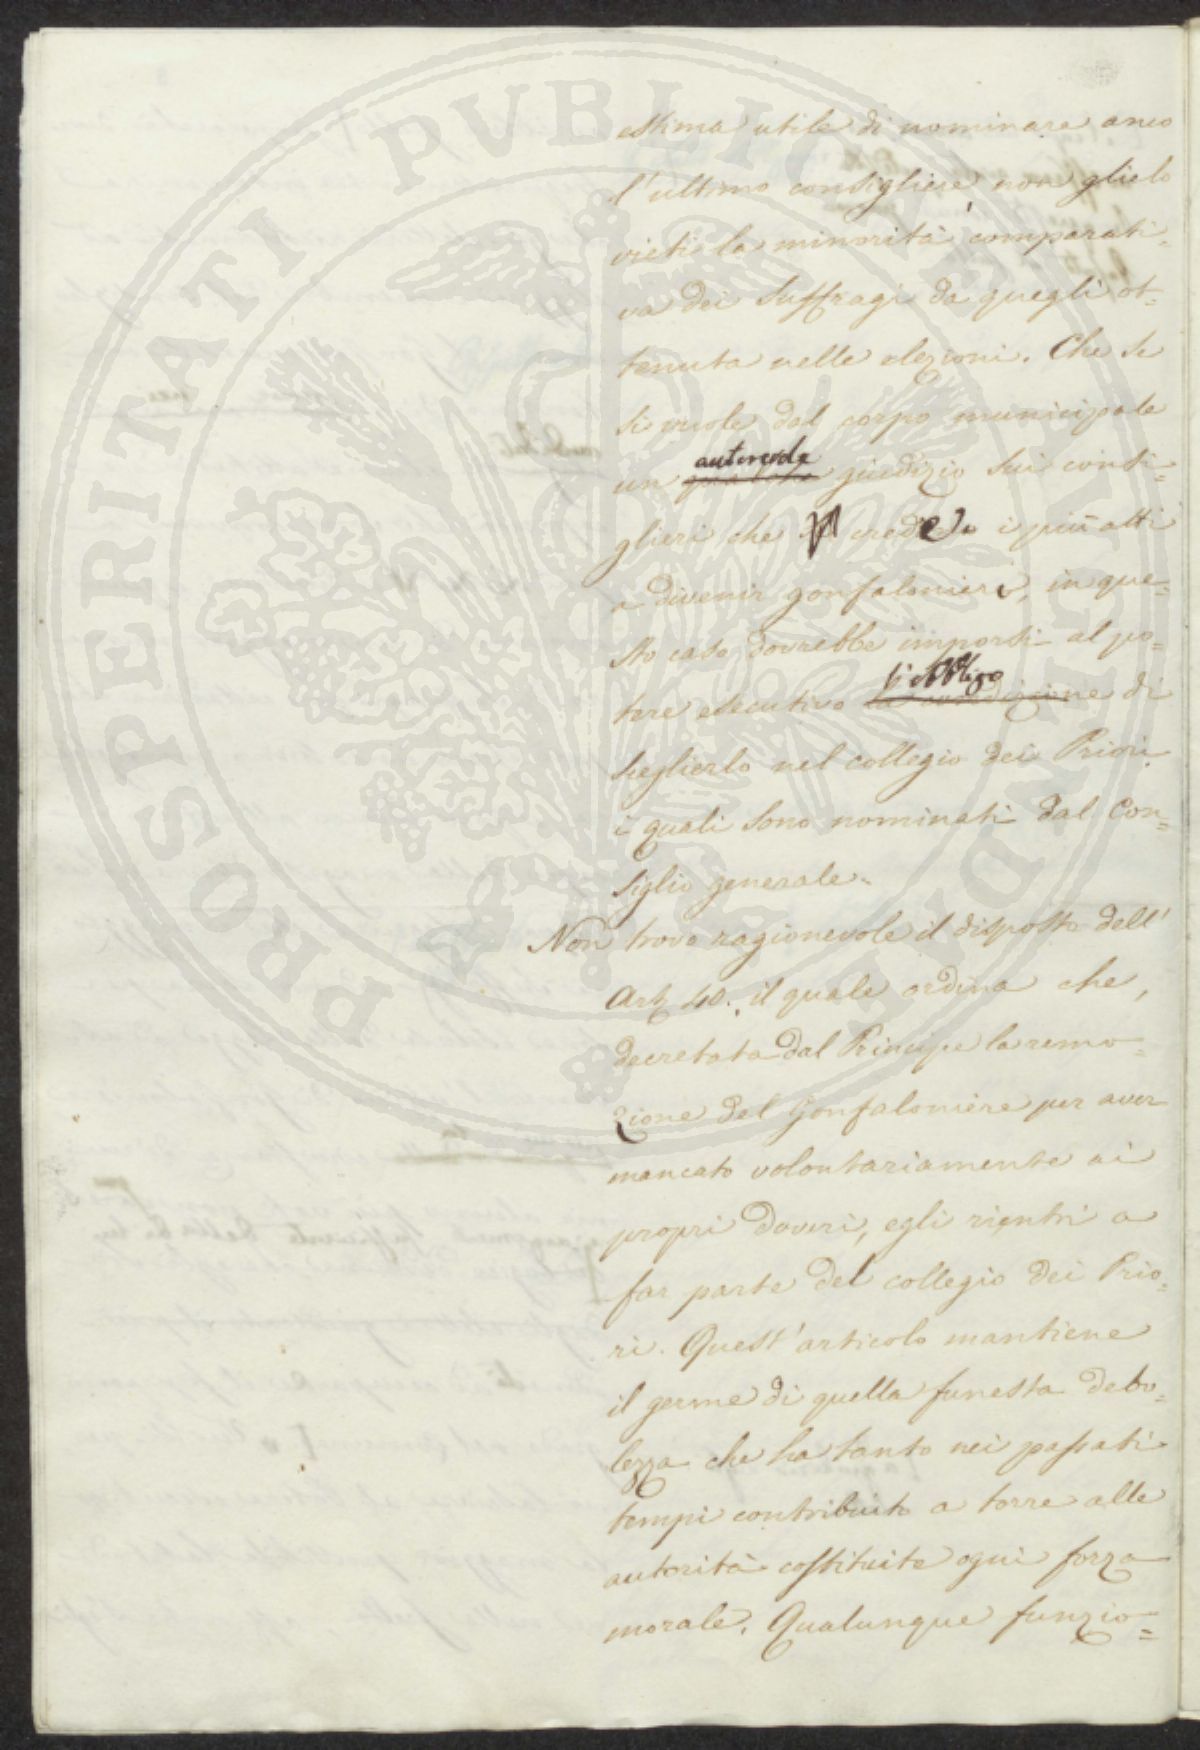 estima utile di nominare anco
l'ultimo consigliere non glielo
vieti la minorità comparati=
va dei suffragi da quegli ot=
tenuta nelle elezioni. Che se
si vuole dal corpo municipale
un autorevole giudizio sui consi=
glieri che crede i più atti
a divenir gonfalonieri, in que=
sto caso dovrebbe imporsi al po=
tere esecutivo l'obbligo di
sceglierlo nel collegio dei Priori
i quali sono nominati dal Con=
siglio generale.
Non trovo ragionevole il disposto dell'
Art. 40. il quale ordina che,
decretata dal Principe la remo=
zione del Gonfaloniere per aver
mancato volontariamente ai
propri doveri, egli rientri a
far parte del collegio dei Prio=
ri. Quest'articolo mantiene
il germe di quella funesta debo=
lezza che ha tanto nei passati
tempi contribuito a torre alle
autorità costituite ogni forza
morale. Qualunque funzio=
PROSPERITATI PVBLICAE AVGENDAE